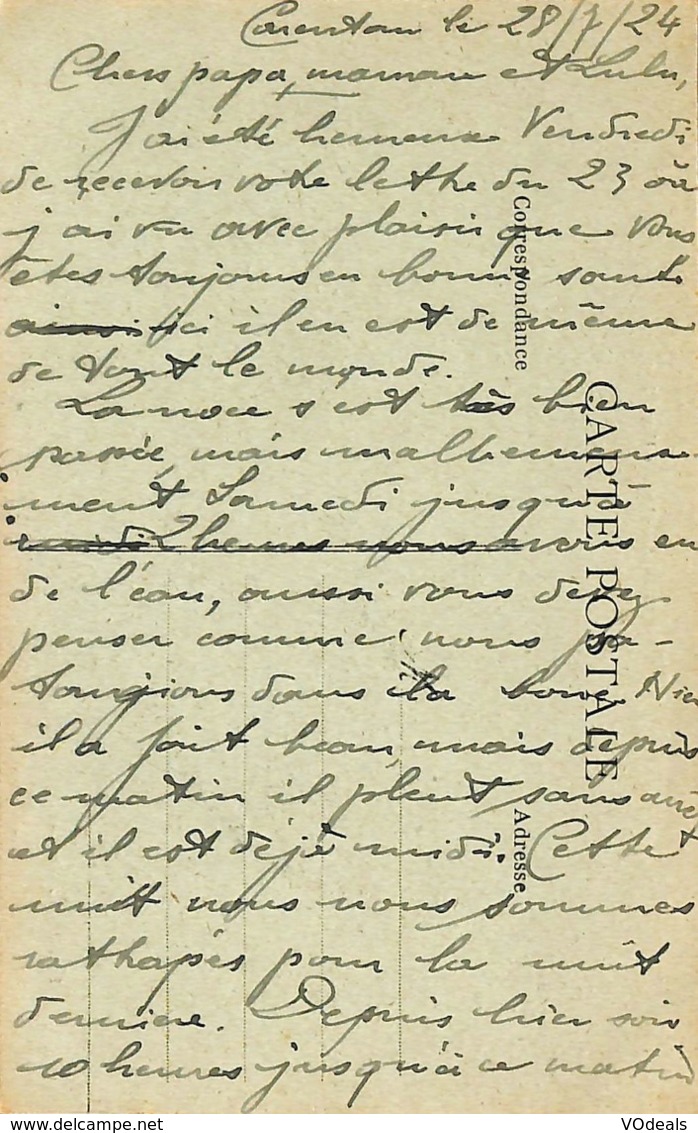 Carentan le 28/7/24
Chers papa, maman et Lulu,
J'ai été heureux Vendredi
de recevoir votre lettre du 23 où
j'ai vu avec plaisir que vous
êtes toujours en bonne santé
ainsi ici il en est de même
de tout le monde.
La noce s'est très bien
passée, mais malheureuse-
ment Samedi jusqu'à
midi 2 heures nous avons eu
de l'eau, aussi vous devez
penser comme nous pa-
taugions dans la boue Hier
il a fait beau, mais depuis
ce matin il pleut sans arrêt
et il est déjà midi. Cette
nuit nous nous sommes
rathapés pour la nuit
dernière. Depuis hier soir
10 heures jusqu'à ce matin
Correspondance
CARTE POSTALE
Adresse
VOdeals